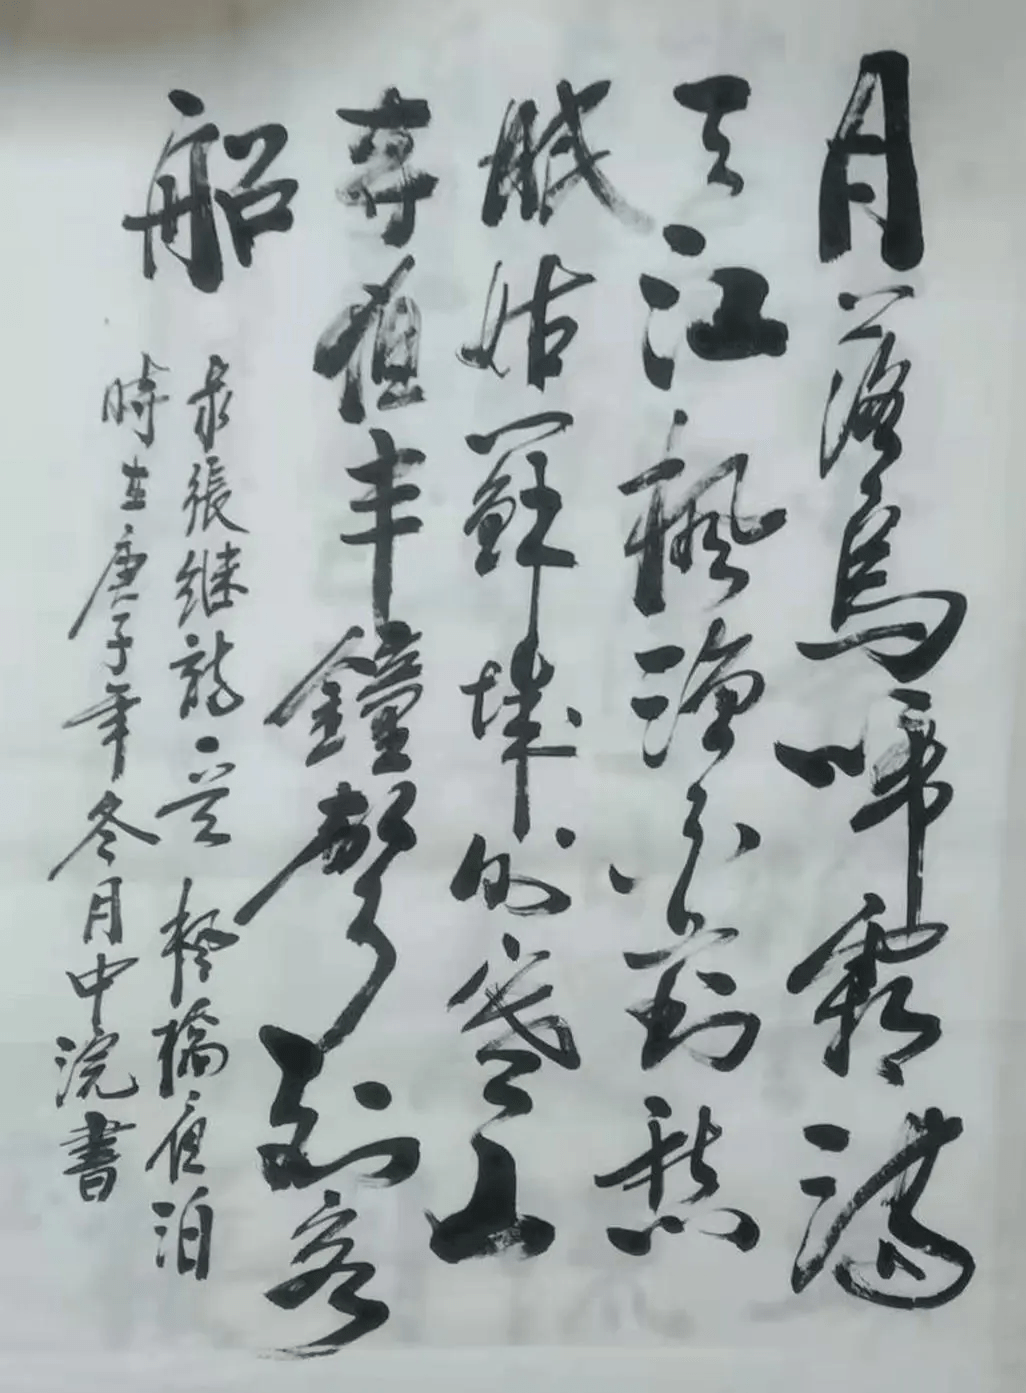 月落烏啼霜滿
天江楓漁火對愁
眠姑蘇城外寒山
寺夜半鐘聲到客
船
录張继詩一首楓橋夜泊
時在庚子年冬月中浣書